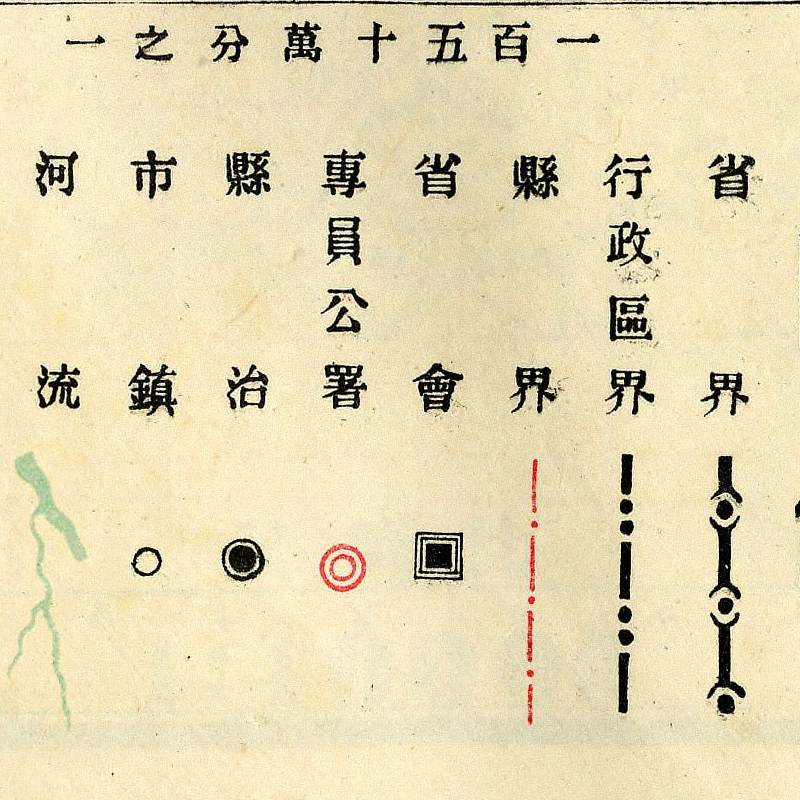 一百五十萬分之一
省界
行政區界
縣界
省會
專員公署
縣治
市鎮
河流